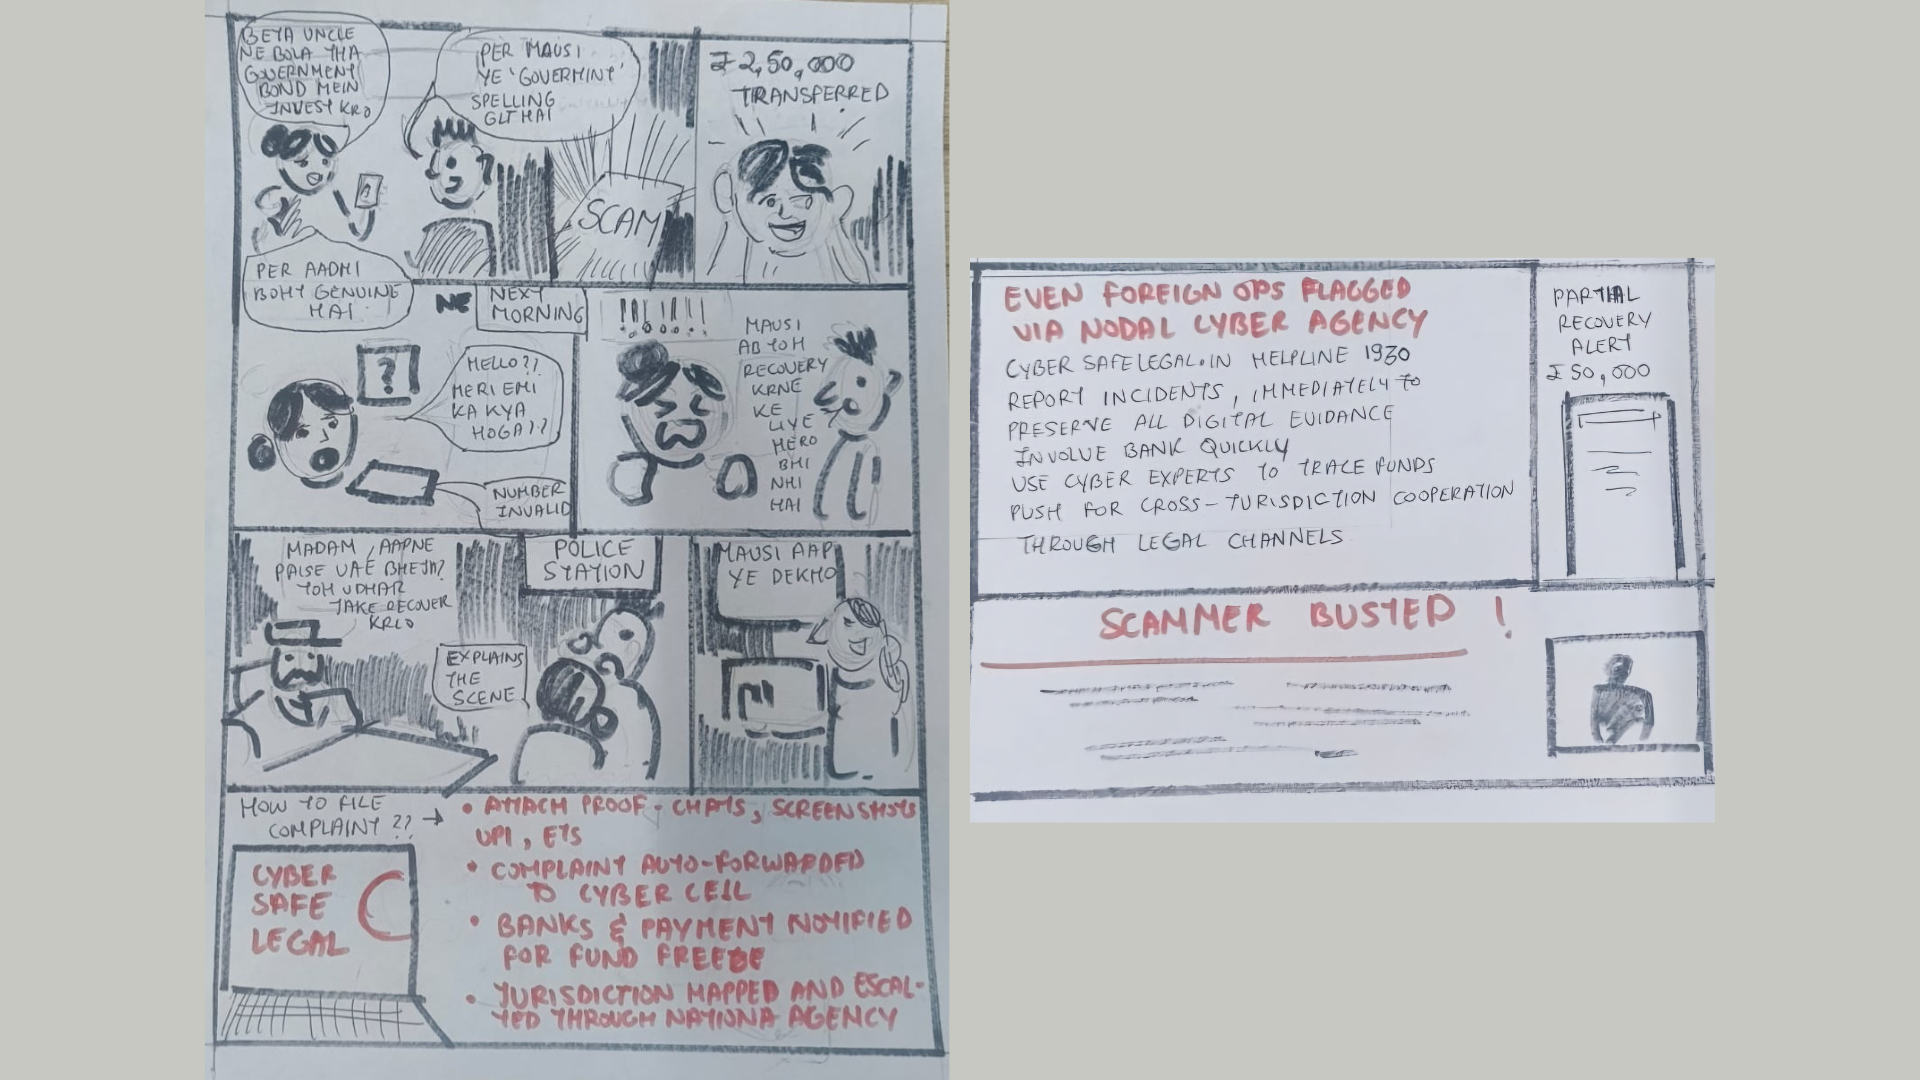 BETA UNCLE
NE BOLA THA
GOVERNMENT
BOND MEIN
INVEST KRO
PER MAUSI
YE 'GOVERMINT'
SPELLING
GLT HAI
SCAM
₹ 2,50,000
TRANSFERRED
PER AADMI
BOHT GENUINE
HAI
NE
NEXT
MORNING
?
HELLO??
MERI EMI
KA KYA
HOGA??
NUMBER
INVALID
!!!!!!!
MAUSI
AB TOH
RECOVERY
KRNE
KE
LIYE
HERO
BHI
NHI
HAI
MADAM, AAPNE
PAISE UAE BHEJA?
TOH UDHAR
JAKE RECOVER
KRLO
EXPLAINS
THE
SCENE
POLICE
STATION
MAUSI AAP
YE DEKHO
HOW TO FILE
COMPLAINT ?? →
CYBER
SAFE
LEGAL
• ATTACH PROOF - CHATS, SCREENSHOTS
UPI, ETS
• COMPLAINT AUTO-FORWARDED
TO CYBER CELL
• BANKS & PAYMENT NOTIFIED
FOR FUND FREEZE
• JURISDICTION MAPPED AND ESCAL-
TED THROUGH NATIONA AGENCY
EVEN FOREIGN OPS FLAGGED
VIA NODAL CYBER AGENCY
CYBER SAFELEGAL.IN HELPLINE 1930
REPORT INCIDENTS, IMMEDIATELY TO
PRESERVE ALL DIGITAL EVIDANCE
INVOLVE BANK QUICKLY
USE CYBER EXPERTS TO TRACE FUNDS
PUSH FOR CROSS-JURISDICTION COOPERATION
THROUGH LEGAL CHANNELS
PARTIAL
RECOVERY
ALERT
₹ 50,000
SCAMMER BUSTED !